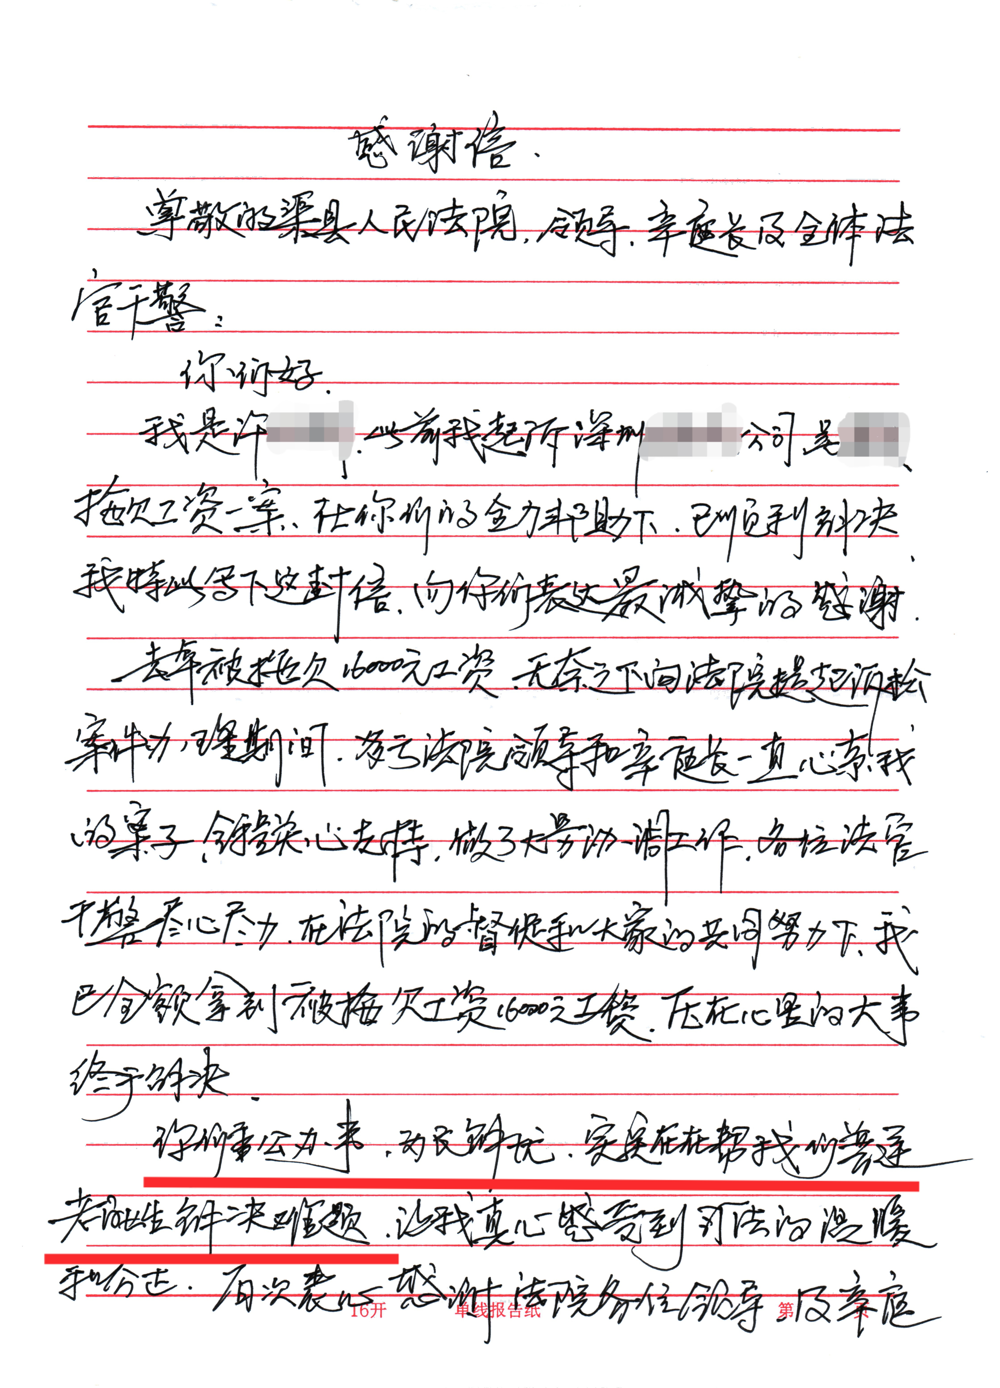 感谢信.
尊敬的渠县人民法院,领导,辛庭长及全体法
官干警:
你们好.
我是许 ,此前我起诉深圳 公司吴 、
拖欠工资一案、在你们的全力帮助下、已顺利解决
我特此写下这封信,向你们表达最诚挚的感谢.
去年被拖欠16000元工资,无奈之下向法院提起诉讼
案件办理期间.多亏法院领导和辛庭长一直心系我
的案子,关心支持,做了大量协调工作,各位法官
干警尽心尽力,在法院的督促和大家的共同努力下,我
已全额拿到被拖欠工资16000元工资,压在心里的大事
终于解决.
你们秉公办事,为民解忧,实实在在帮我们普通
老百姓解决难题,让我真心感受到司法的温暖
和公正.再次衷心感谢法院各位领导及辛庭
16开 单线报告纸 第 页